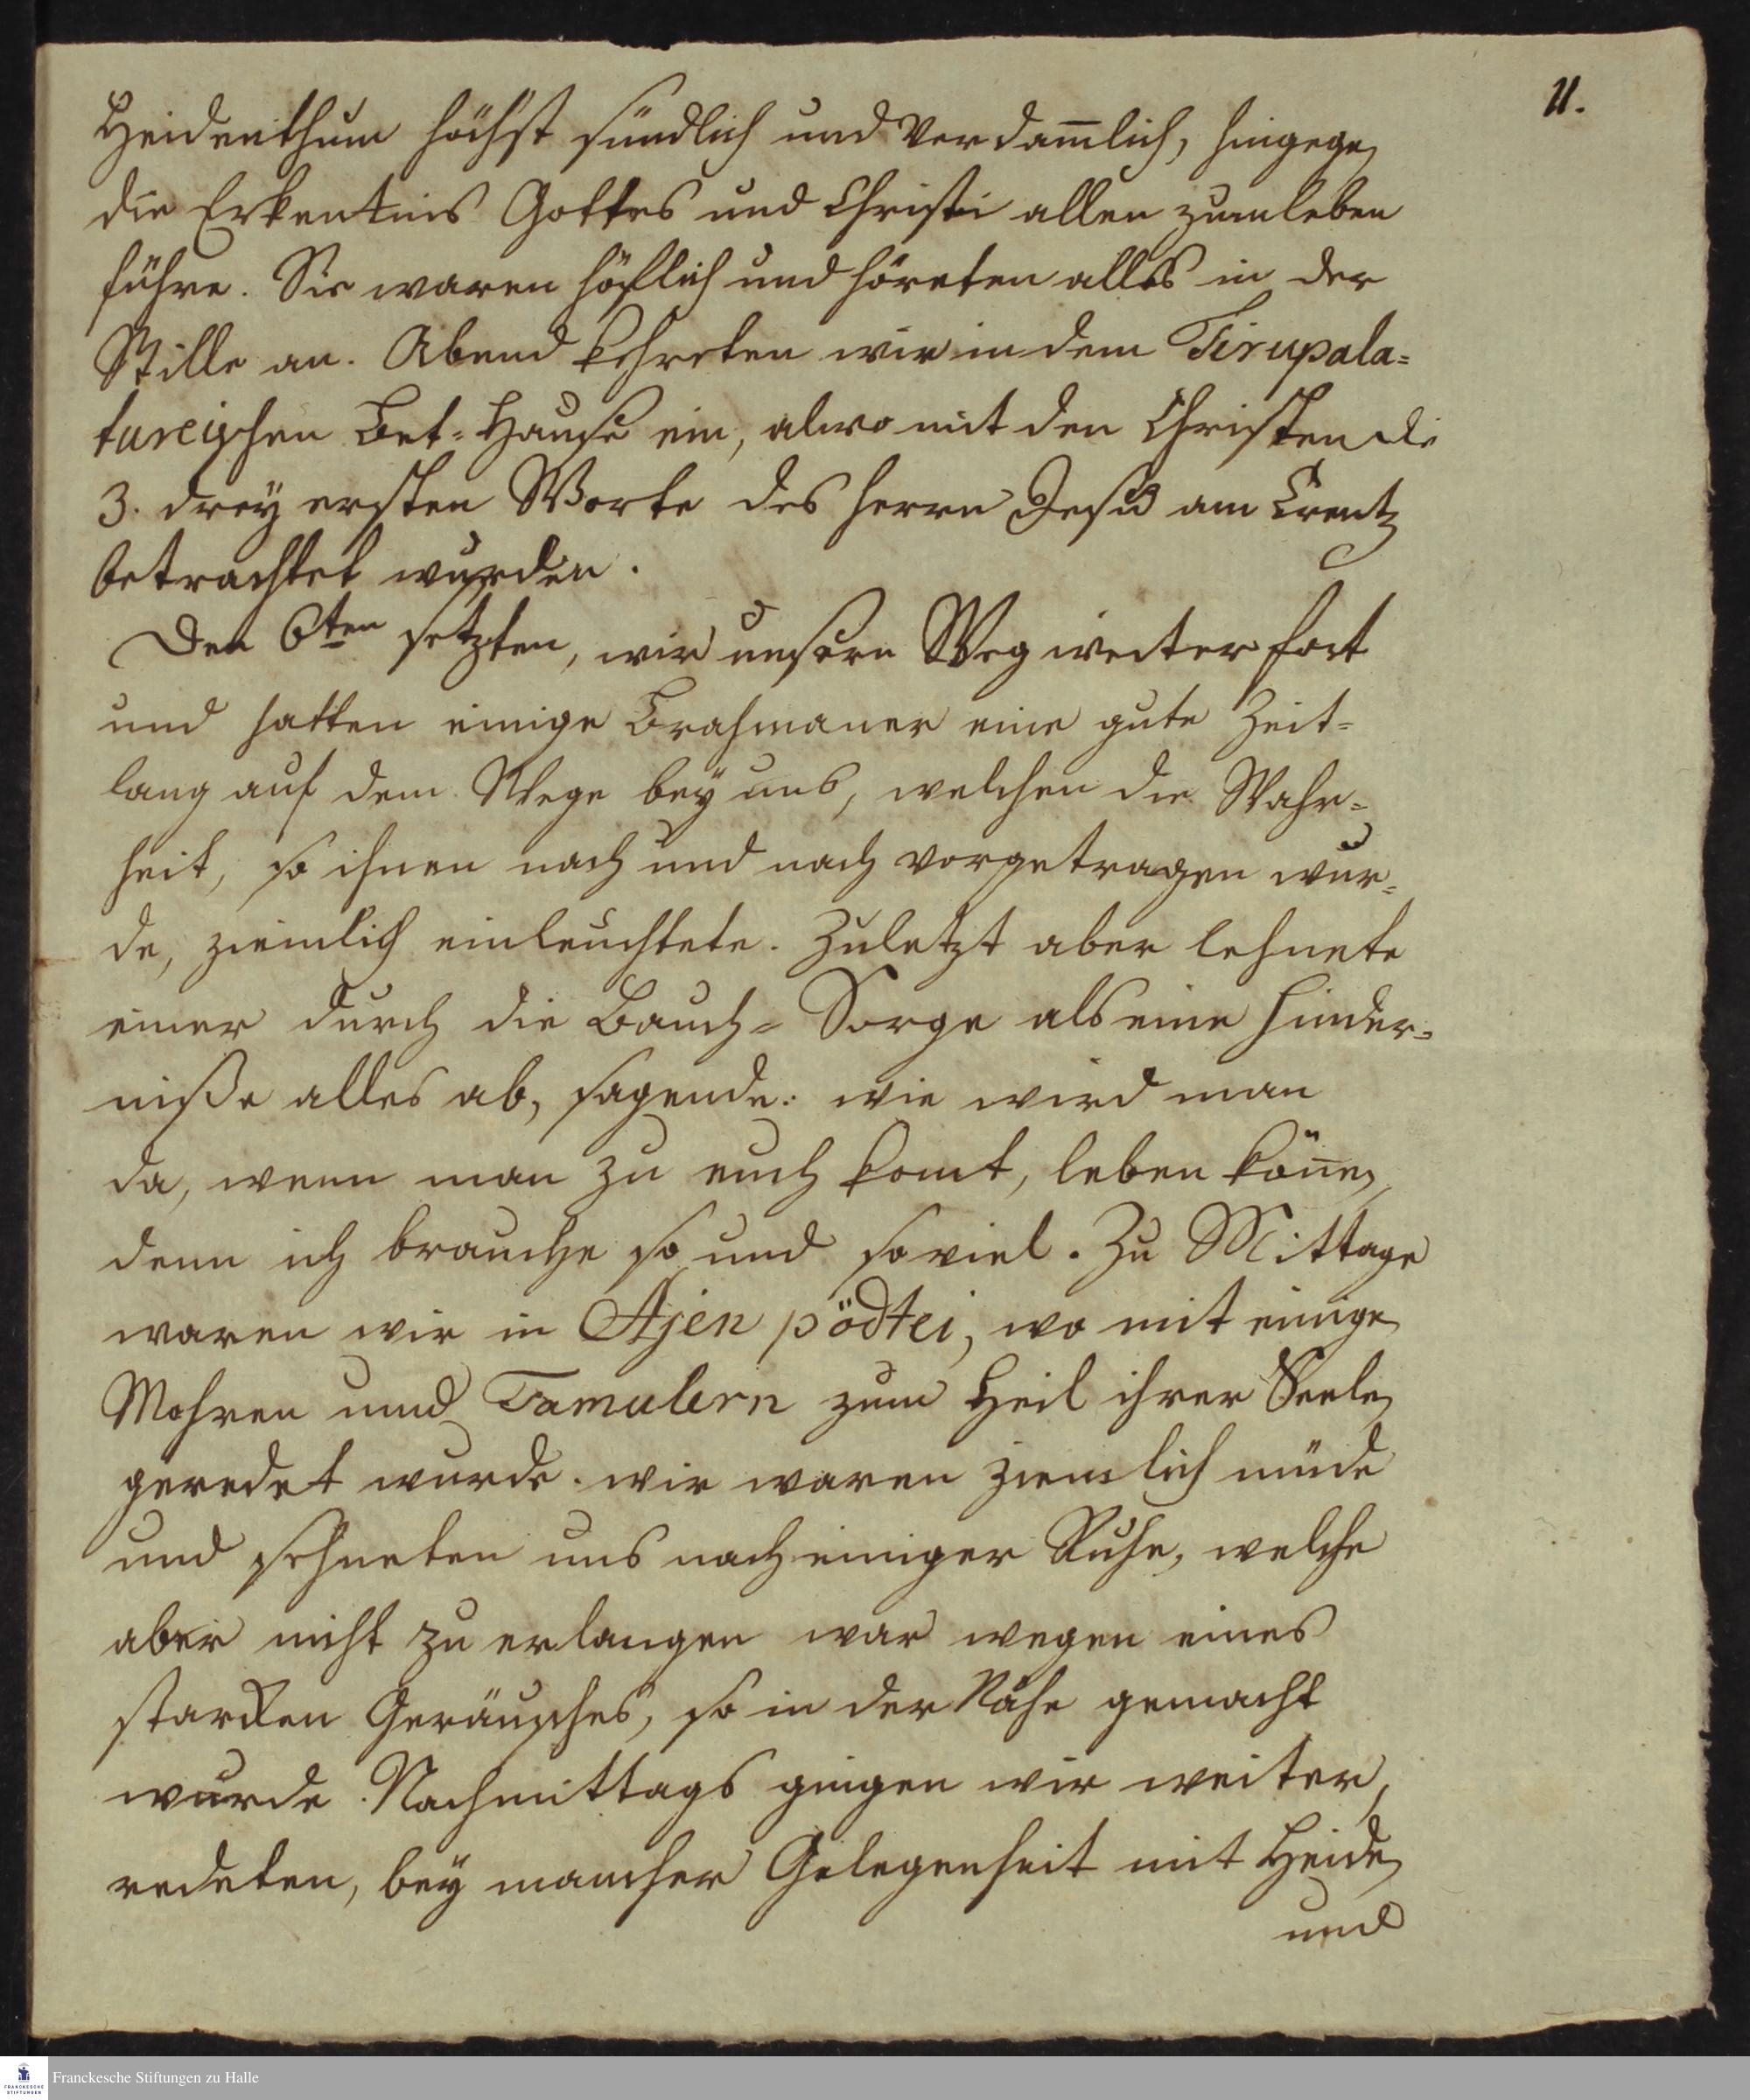 11.
Heidenthum höchst sündlich und verdam̅lich, hingegen
die Erkentnis Gottes und Christi allen zum leben
führe. Sie waren höflich und höreten alles in der
Stille an. Abend kehreten wir in dem Tirupala=
tureischen Bet=Hause ein, alwo mit den Christen die
3. drey ersten Worte des Herrn Jesu am Creutz
betrachtet wurden.
Den 6ten setzten, wir unsern Weg weiter fort
und hatten einige Brahmaner eine gute Zeit=
lang auf dem Wege bey uns, welchen die Wahr=
heit, so ihnen nach und nach vorgetragen wur=
de, ziemlich einleuchtete. Zuletzt aber lehnete
einer durch die Bauch=Sorge als eine Hinder=
niße alles ab, sagende: wie wird man
da, wenn man zu euch komt, leben kön̅en,
denn ich brauche so und so viel. Zu Mittage
waren wir in Ajen pödtei, wo mit einigen
Mohren und Tamulern zum Heil ihrer Seelen
geredet wurde. wir waren ziemlich müde
und sehneten uns nach einiger Ruhe, welche
aber nicht zu erlangen war wegen eines
starcken Geräusches, so in der Nähe gemacht
wurde. Nachmittags gingen wir weiter,
redeten, bey mancher Gelegenheit mit Heiden
und
Franckesche Stiftungen zu Halle
FRANCKESCHE STIFTUNGEN